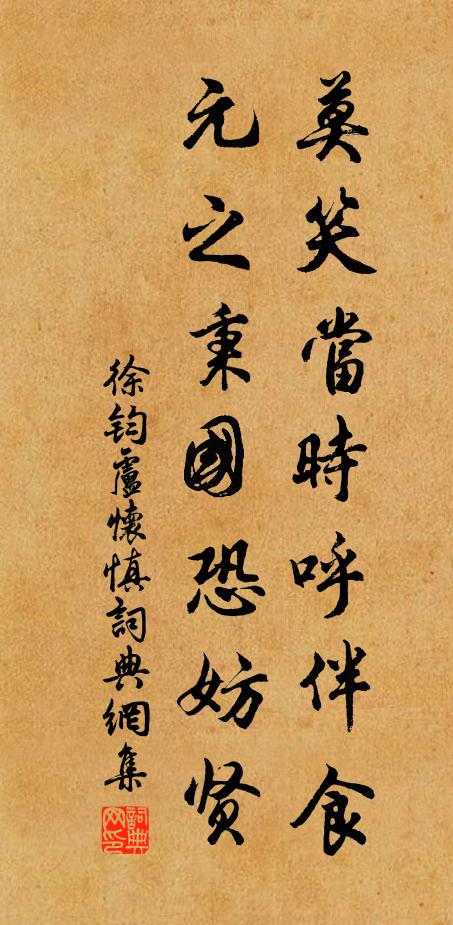 莫笑當時呼伴食
元之秉國恐妨贤
徐鈞盧懷慎詞典網集
詞典网印